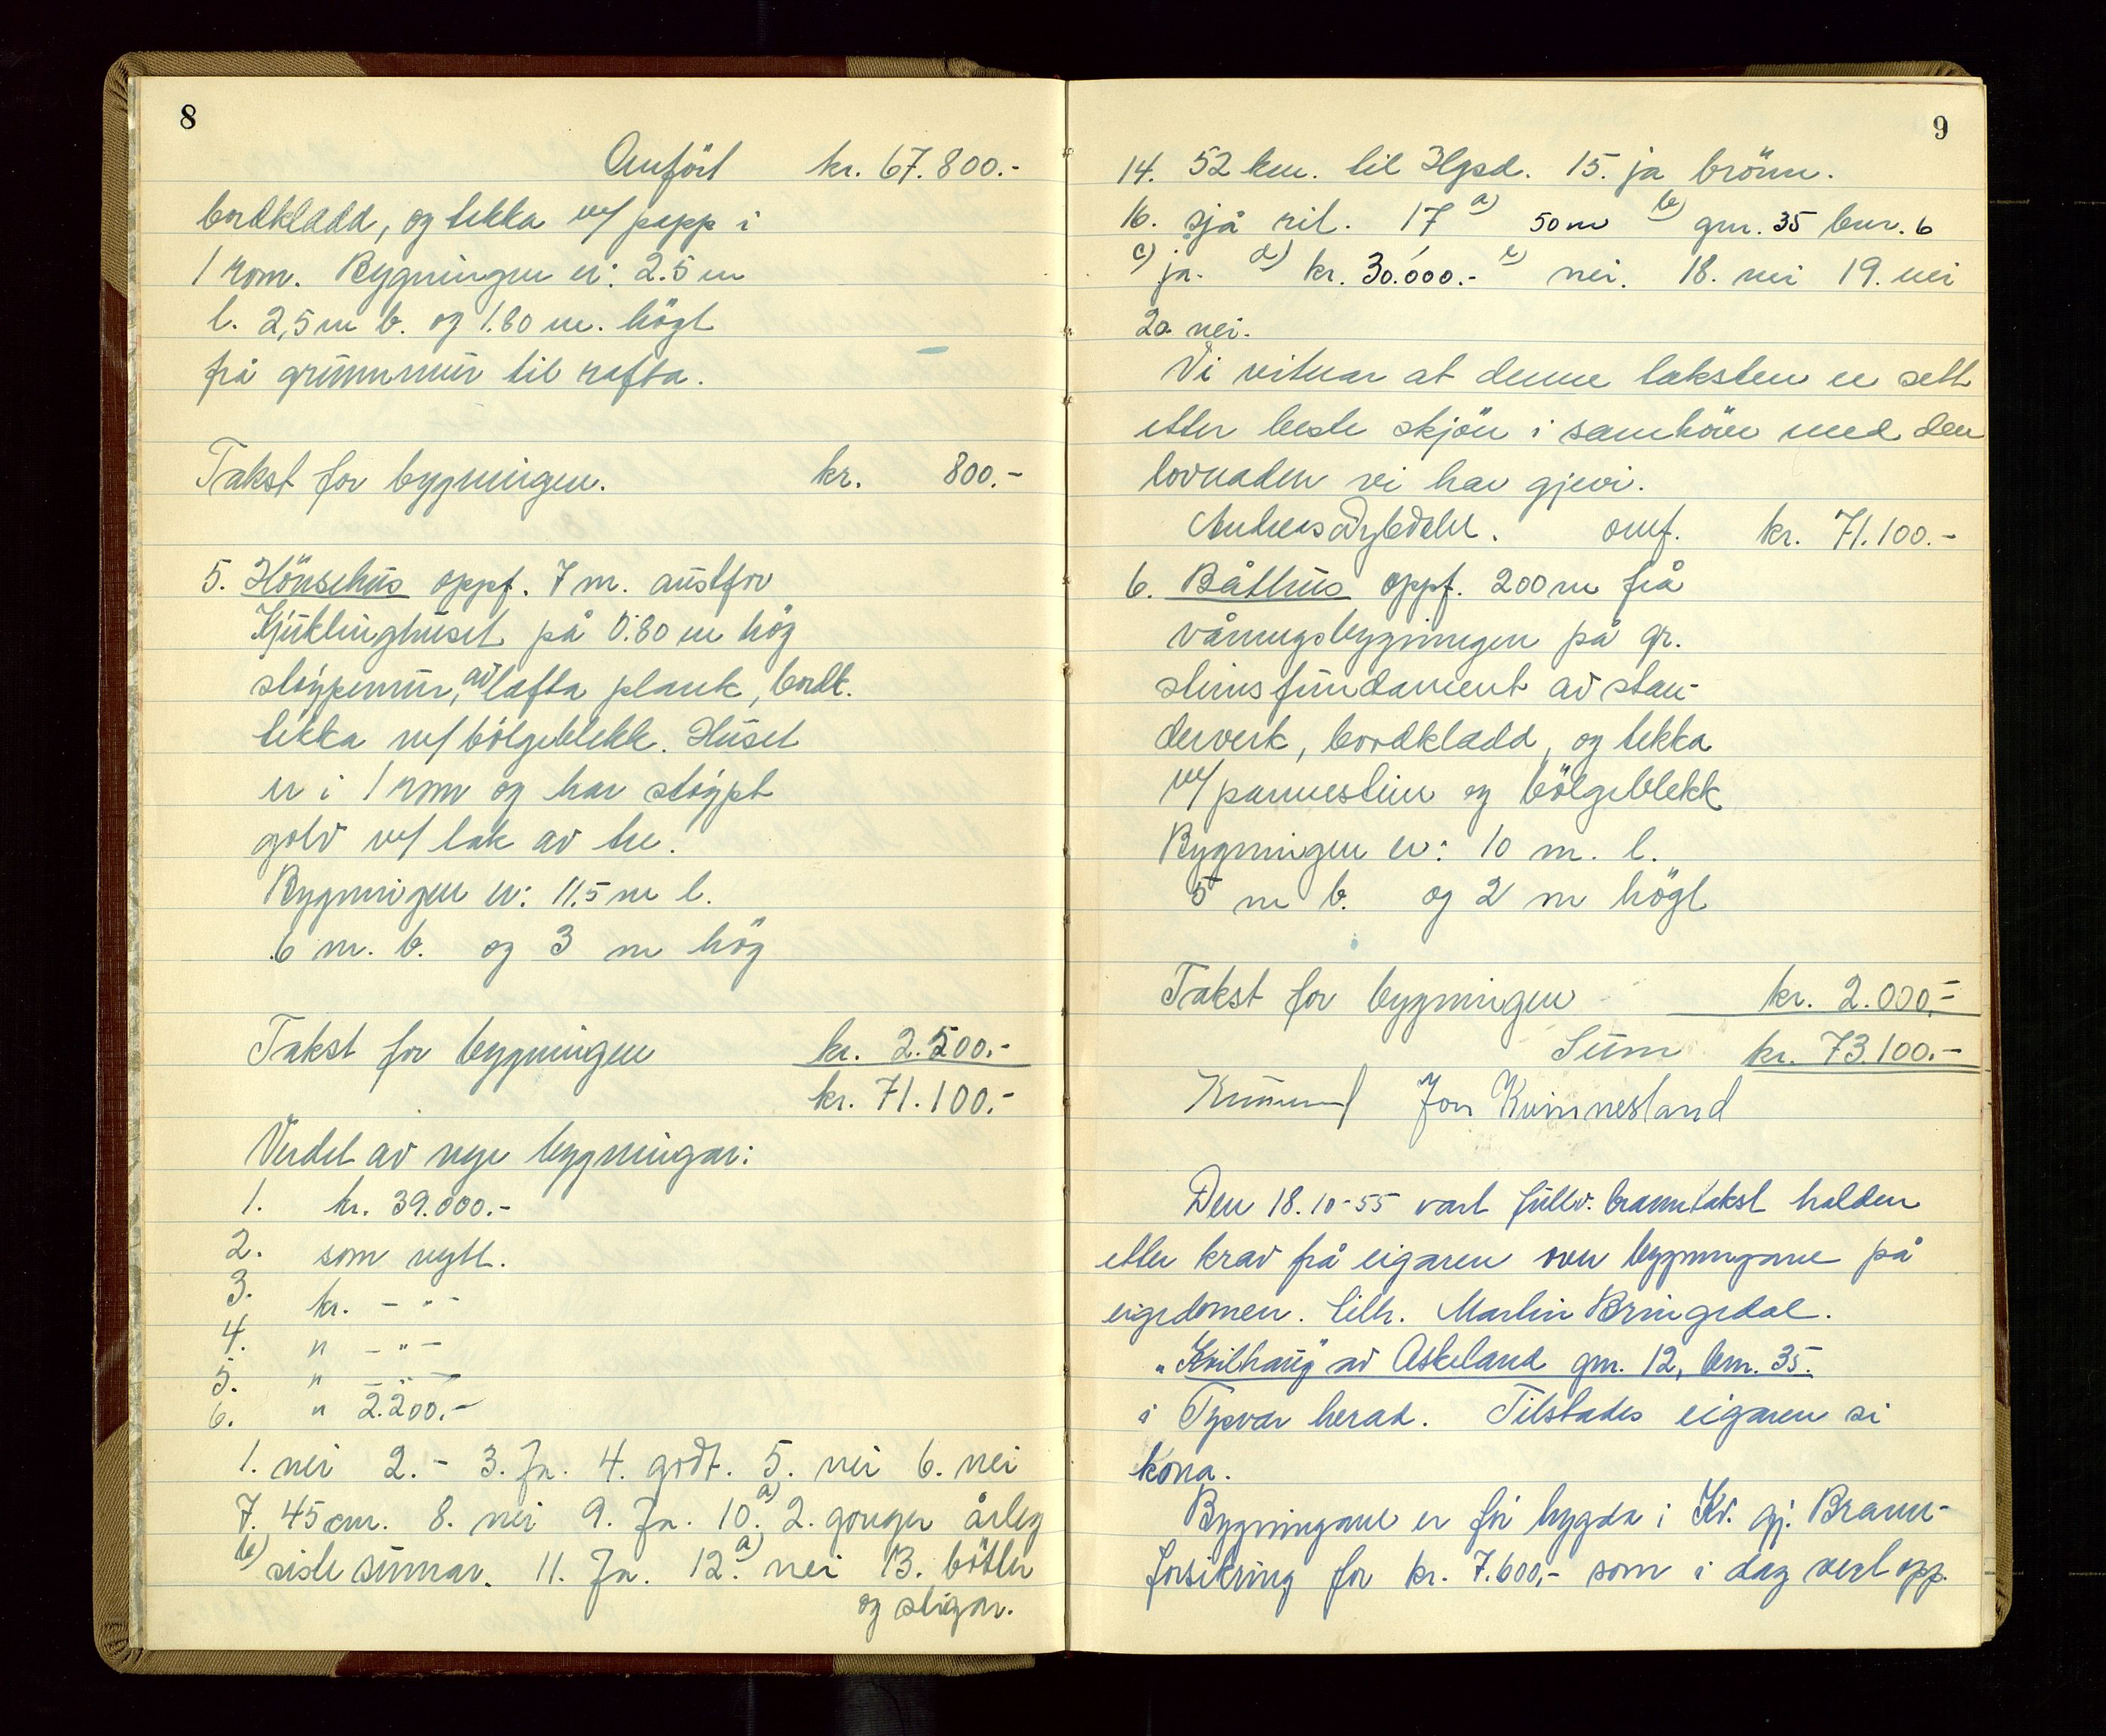 8
Omfört kr. 67.800.-
bordkledd, og tekka m/ papp i
1 rom. Bygningen er: 2.5 m
l. 2,5 m b. og 1.80 m. högt
frå grunnmur til rafta.
Takst for bygningen. kr. 800.-
5. Hönsehus oppf. 7 m. austfor
Kjuklinghuset på 0.80 m hög
stöypemur, av lafta plank, bordk.
tekka m/ bölgeblekk. Huset
er i 1 rom og har stöypt
golv m/ lak av tre.
Bygningen er: 11.5 m l.
6 m. b. og 3 m hög
Takst for bygningen kr. 2.500.-
kr. 71.100.-
Verdet av nye bygningar:
1. kr. 39.000.-
2. som nytt.
3. kr. - " -
4. " - " -
5. " - " -
6. " 2.200.-
1. nei 2. - 3. Ja. 4. godt. 5. nei 6. nei
7. 45 cm. 8. nei 9. Ja. 10. a) 2. gonger årleg
b) siste sumar. 11. Ja. 12. a) nei 13. bötter
og stigar.
9
14. 52 km. til Hgsd. 15. ja brönn.
16. sjå rit. 17 a) 50 m b) gnr. 35 bnr. 6
c) ja. d) kr. 30.000.- e) nei. 18. nei 19. nei
20. nei.
Vi vitnar at denne taksten er sett
etter beste skjön i samhöve med den
lovnaden vi har gjevi.
Andreas omf. kr. 71.100.-
6. Båthus oppf. 200 m frå
våningsbygningen på gr.
steinsfundament av stan-
derverk, bordkledd, og tekka
m/ pannestein og bölgeblekk
Bygningen er: 10 m. l.
5 m b. og 2 m högt
Takst for bygningen kr. 2.000,-
Sum kr. 73.100.-
Jon Kvinnesland
Den 18.10-55 vart fullv. branntakst halden
etter krav frå eigaren over bygningane på
eigedomen. tilh. Martin Bringedal.
"Kvilhaug" av Askeland gnr. 12, bnr. 35.
i Tysvær herad. Tilstades eigaren si
kona.
Bygningane erför trygda i Kv. gj. Brann-
forsikring for kr. 7.600,- som i dag vert opp.